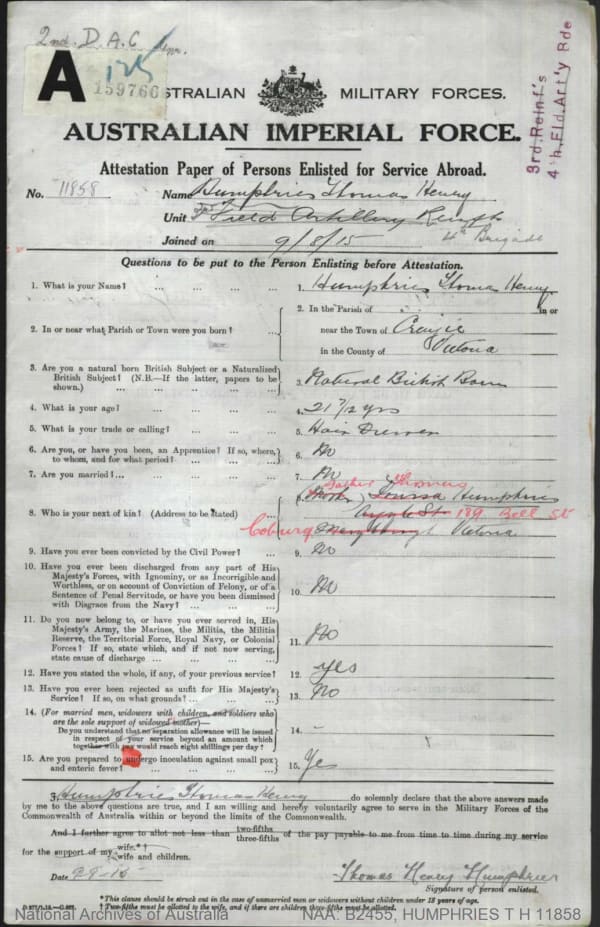 2nd. D. A. C
A
125
159766
AUSTRALIAN MILITARY FORCES.
3rd. Reinf's
4th. Fld. Art'y Bde
AUSTRALIAN IMPERIAL FORCE.
Attestation Paper of Persons Enlisted for Service Abroad.
No. 11858 Name Humphries Thomas Henry
Unit Field Artillery Reinfts
4th Brigade
Joined on 9/8/15
Questions to be put to the Person Enlisting before Attestation.
1. What is your Name? ... ... ... ... 1. Humphries Thomas Henry
2. In or near what Parish or Town were you born? ... 2. In the Parish of in or
near the Town of Craigie
in the County of Victoria
3. Are you a natural born British Subject or a Naturalized
British Subject? (N.B.—If the latter, papers to be
shown.) ... ... ... ... ... 3. Natural British Born
4. What is your age? ... ... ... ... 4. 21 7/12 yrs
5. What is your trade or calling? ... ... ... 5. Hair Dresser
6. Are you, or have you been, an Apprentice? If so, where,
to whom, and for what period? ... ... ... 6. No
7. Are you married?... ... ... ... ... 7. No
Father Thomas
8. Who is your next of kin? (Address to be stated) ... 8. (Mother) Louisa Humphries
Argyle St 189 Bell St
Coburg Maryborough Victoria
9. Have you ever been convicted by the Civil Power? ... 9. No
10. Have you ever been discharged from any part of His
Majesty's Forces, with Ignominy, or as Incorrigible and
Worthless, or on account of Conviction of Felony, or of a
Sentence of Penal Servitude, or have you been dismissed
with Disgrace from the Navy? ... ... ... 10. No
11. Do you now belong to, or have you ever served in, His
Majesty's Army, the Marines, the Militia, the Militia
Reserve, the Territorial Force, Royal Navy, or Colonial
Forces? If so, state which, and if not now serving,
state cause of discharge ... ... ... ... 11. No
12. Have you stated the whole, if any, of your previous service? 12. yes
13. Have you ever been rejected as unfit for His Majesty's
Service? If so, on what grounds? ... ... ... 13. No
14. (For married men, widowers with children, and soldiers who
are the sole support of widowed mother)—
Do you understand that no separation allowance will be issued
in respect of your service beyond an amount which
together with pay would reach eight shillings per day? 14. -
15. Are you prepared to undergo inoculation against small pox
and enteric fever? ... ... ... ... 15. Ye
I, Humphries Thomas Henry do solemnly declare that the above answers made
by me to the above questions are true, and I am willing and hereby voluntarily agree to serve in the Military Forces of the
Commonwealth of Australia within or beyond the limits of the Commonwealth.
And I further agree to allot not less than two-fifths three-fifths of the pay payable to me from time to time during my service
for the support of my wife.*† wife and children.
Date 9-8-15 Thomas Henry Humphries
Signature of person enlisted.
*This clause should be struck out in the case of unmarried men or widowers without children under 18 years of age.
† Two-fifths must be allotted to the wife, and if there are children three-fifths must be allotted.
National Archives of Australia NAA: B2455, HUMPHRIES T H 11858